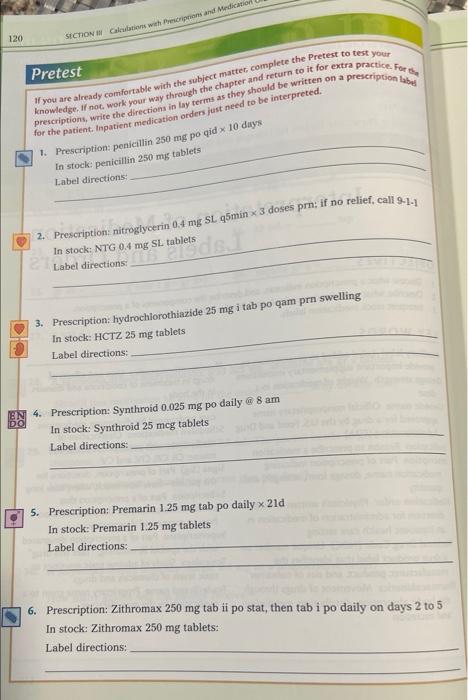 120
SECTION III Calculations with Prescriptions and Medication
Pretest
If you are already comfortable with the subject matter, complete the Pretest to test your
knowledge. If not, work your way through the chapter and return to it for extra practice. For the
prescriptions, write the directions in lay terms as they should be written on a prescription label
for the patient. Inpatient medication orders just need to be interpreted.
1. Prescription: penicillin 250 mg po qid × 10 days
In stock: penicillin 250 mg tablets
Label directions:
2. Prescription: nitroglycerin 0.4 mg SL q5min × 3 doses prn; if no relief, call 9-1-1
In stock: NTG 0.4 mg SL tablets
Label directions:
3. Prescription: hydrochlorothiazide 25 mg i tab po qam prn swelling
In stock: HCTZ 25 mg tablets
Label directions:
EN
DO
4. Prescription: Synthroid 0.025 mg po daily @ 8 am
In stock: Synthroid 25 mcg tablets
Label directions:
5. Prescription: Premarin 1.25 mg tab po daily × 21d
In stock: Premarin 1.25 mg tablets
Label directions:
6. Prescription: Zithromax 250 mg tab ii po stat, then tab i po daily on days 2 to 5
In stock: Zithromax 250 mg tablets:
Label directions: